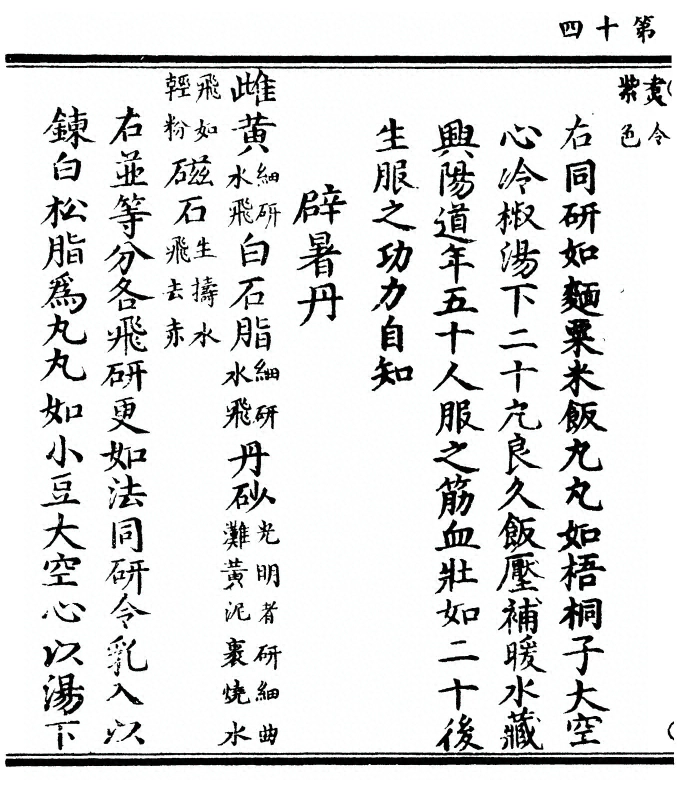 第十四
令紫色
右同研如麵粟米飯丸丸如梧桐子大空
心冷椒湯下二十丸良久飯壓補暖水藏
興陽道年五十人服之筋血壯如二十後
生服之功力自知
辟暑丹
雌黄細研水飛白石脂細研水飛丹砂光明者研細曲灘黄泥裹燒水
飛如輕粉磁石生擣水飛去赤
右並等分各飛研更如法同研令乳入以
鍊白松脂爲丸丸如小豆大空心以湯下